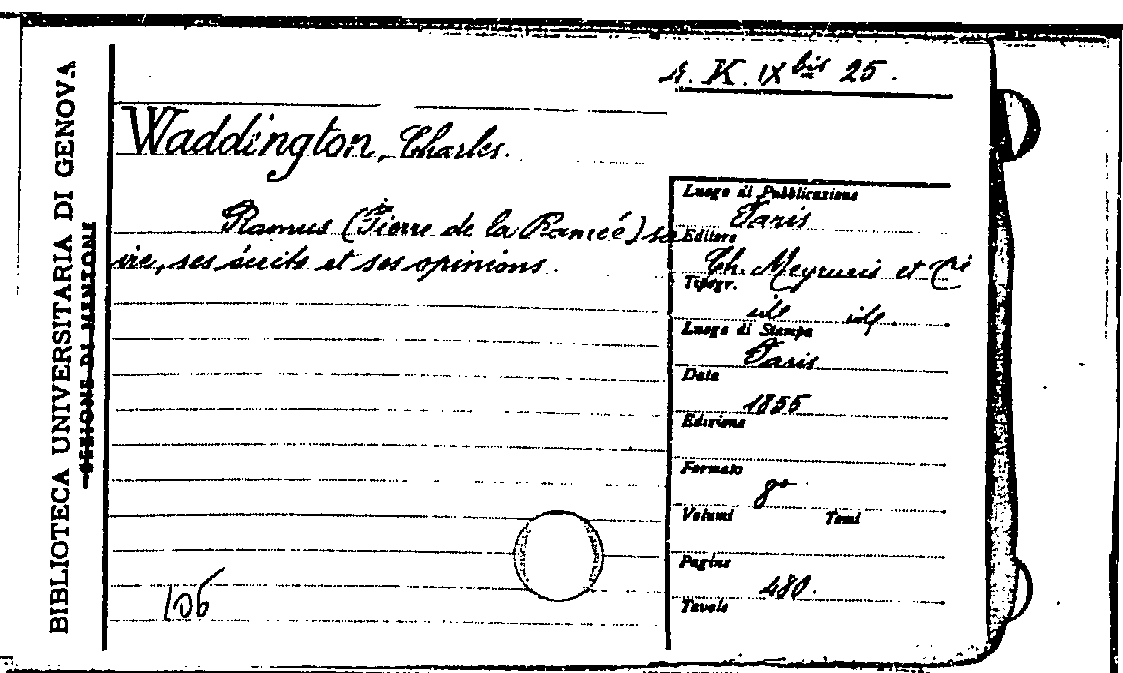 BIBLIOTECA UNIVERSITARIA DI GENOVA
SEZIONE DI MENZIONE
4. K. IX bis 25.
Waddington, Charles.
Ramus (Pierre de la Ramée) sa
vie, ses écrits et ses opinions.
Luogo di Pubblicazione
Paris
Editore
Ch. Meyrueis et Cie
Tipogr.
id id
Luogo di Stampa
Paris
Data
1855
Edizione
Formato
8°
Volumi Tomi
Pagine
480.
Tavole
106